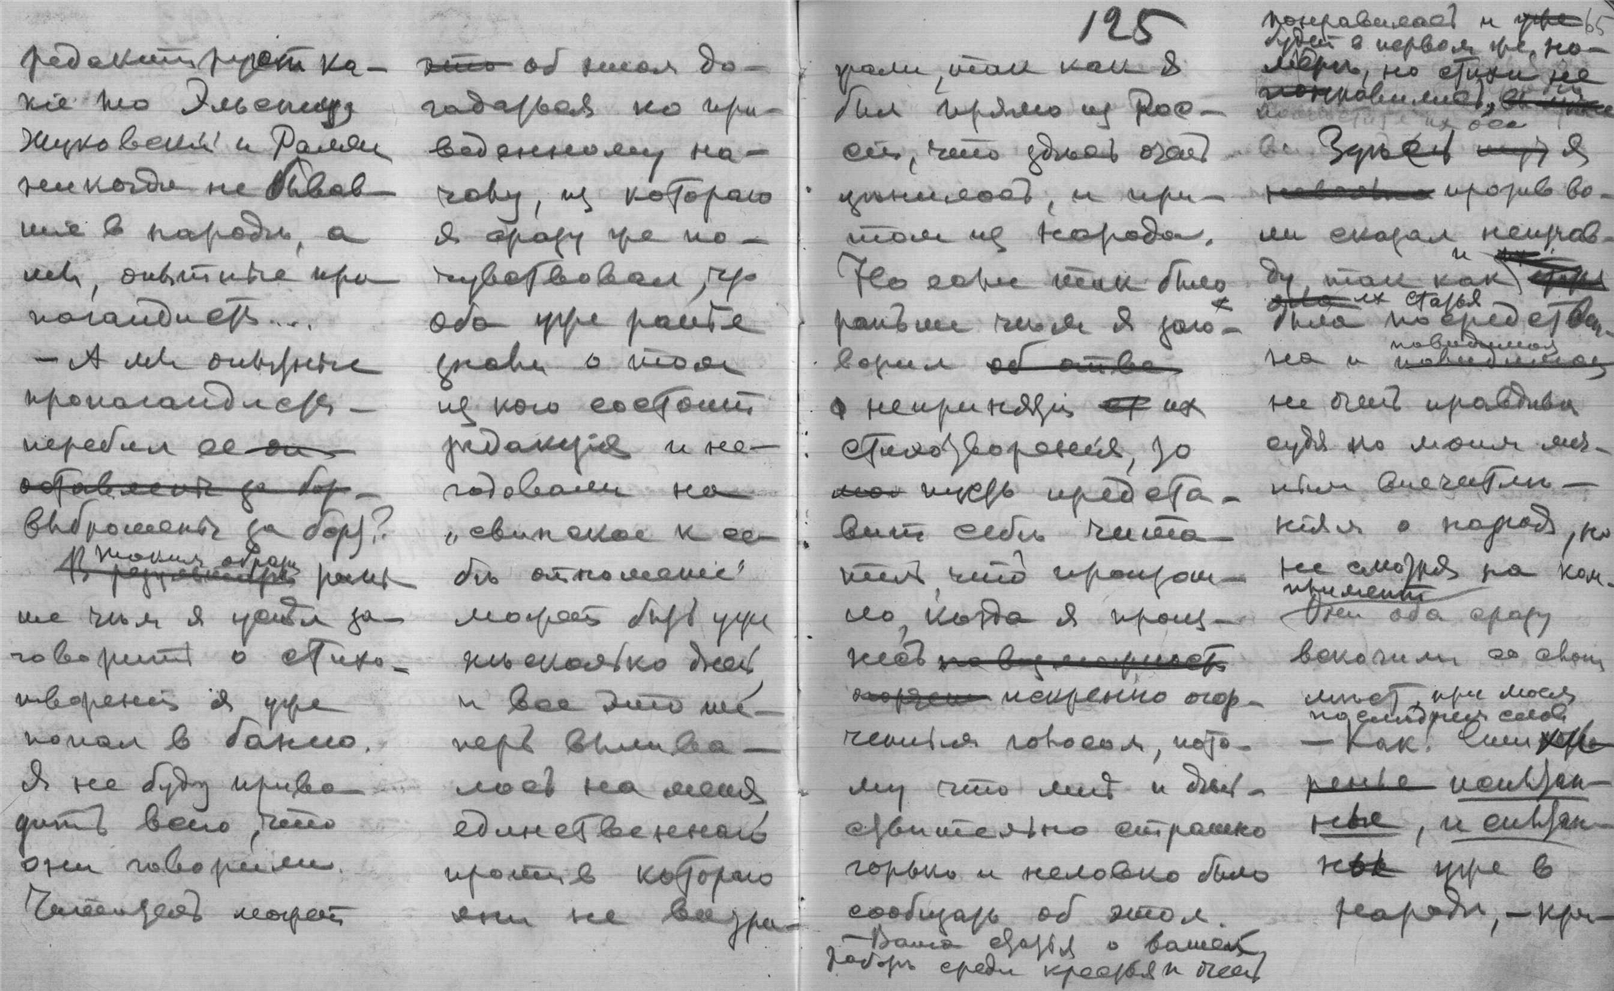 редактируют ка-
кіе то Эльсницъ
Жуковскій и Ралли
никогда не бывав-
шіе в народѣ, а
мы, опытные про
пагандисты....
— А мы опытные
пропагандисты —
перебил ее он
оставлены за бор-
выброшены за борт?
В таким образом рань-
ше чѣм я успѣл за-
говорить о стихо-
твореніи я уже
попал в баню.
Я не буду приво
дить всего, что
они говорили.
Читатель может
это об ином до-
гадаться по при-
веденному на-
чалу, из котораго
я сразу же по-
чувствовал, что
оба уже раньше
знали о том
из кого состоит
редакція и не-
годовали на
„свинское к се-
бѣ отношеніе"
может быть уже
нѣсколько дней,
и все это те-
перь вылива-
лось на меня
единственнаго
против котораго
они не возра-
125
жали, так как я
был прямо из Рос-
сіи, что здѣсь очень
цѣнилось, и при-
том из народа.
Но если так было
раньше чѣм я заго-
ворил об отве
о непринятіи их
стихотворенія, то
пусть предста-
вит себѣ чита-
тель что произош-
ло, когда я произ-
нес
искренно огор-
ченным голосом, пото-
му что мнѣ и дѣй-
ствительно страшно
горько и неловко было
сообщать об этом.
— Ваша статья о вашей
работѣ среди крестьян очень
понравилась и уже 65
будет в первом же но-
мерѣ, но стихи не
понравились,
Здѣсь я
произво во-
ли сказал неправ-
ду, так как и
их статья
была посредствен-
на и повидимому
не очень правдива
судя по моим лич-
ным впечатлѣ-
ніям о народѣ, но
не смотря на ком-
плимент
Они оба сразу
вскочили со своих
мѣст, при моем
послѣднем словѣ
— Как!
ренье испытан-
ные, испытан-
ные уже в
народѣ, — кри-